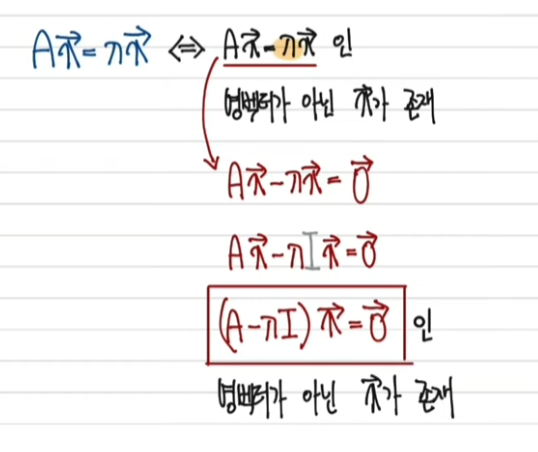 Ax⃗ = λx⃗ ⇔ Ax⃗ - λx⃗ 인
영벡터가 아닌 x⃗가 존재
Ax⃗ - λx⃗ = 0⃗
Ax⃗ - λIx⃗ = 0⃗
(A - λI)x⃗ = 0⃗ 인
영벡터가 아닌 x⃗가 존재